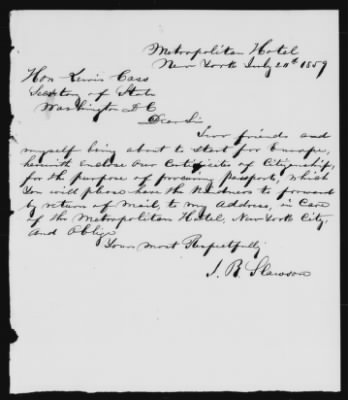 Metropolitan Hotel
New York July 20th 1859
Hon Lewis Cass
Secretary of State
Washington D C
Dear Sir
Four friends and
myself being about to start for Europe,
herewith enclose our Certificates of Citizenship,
for the purpose of procuring passports, which
You will please have the kindness to forward
by return of mail, to my address, in Care
of the Metropolitan Hotel, New York City,
and Oblige
Yours most Respectfully
J. B. Slawson